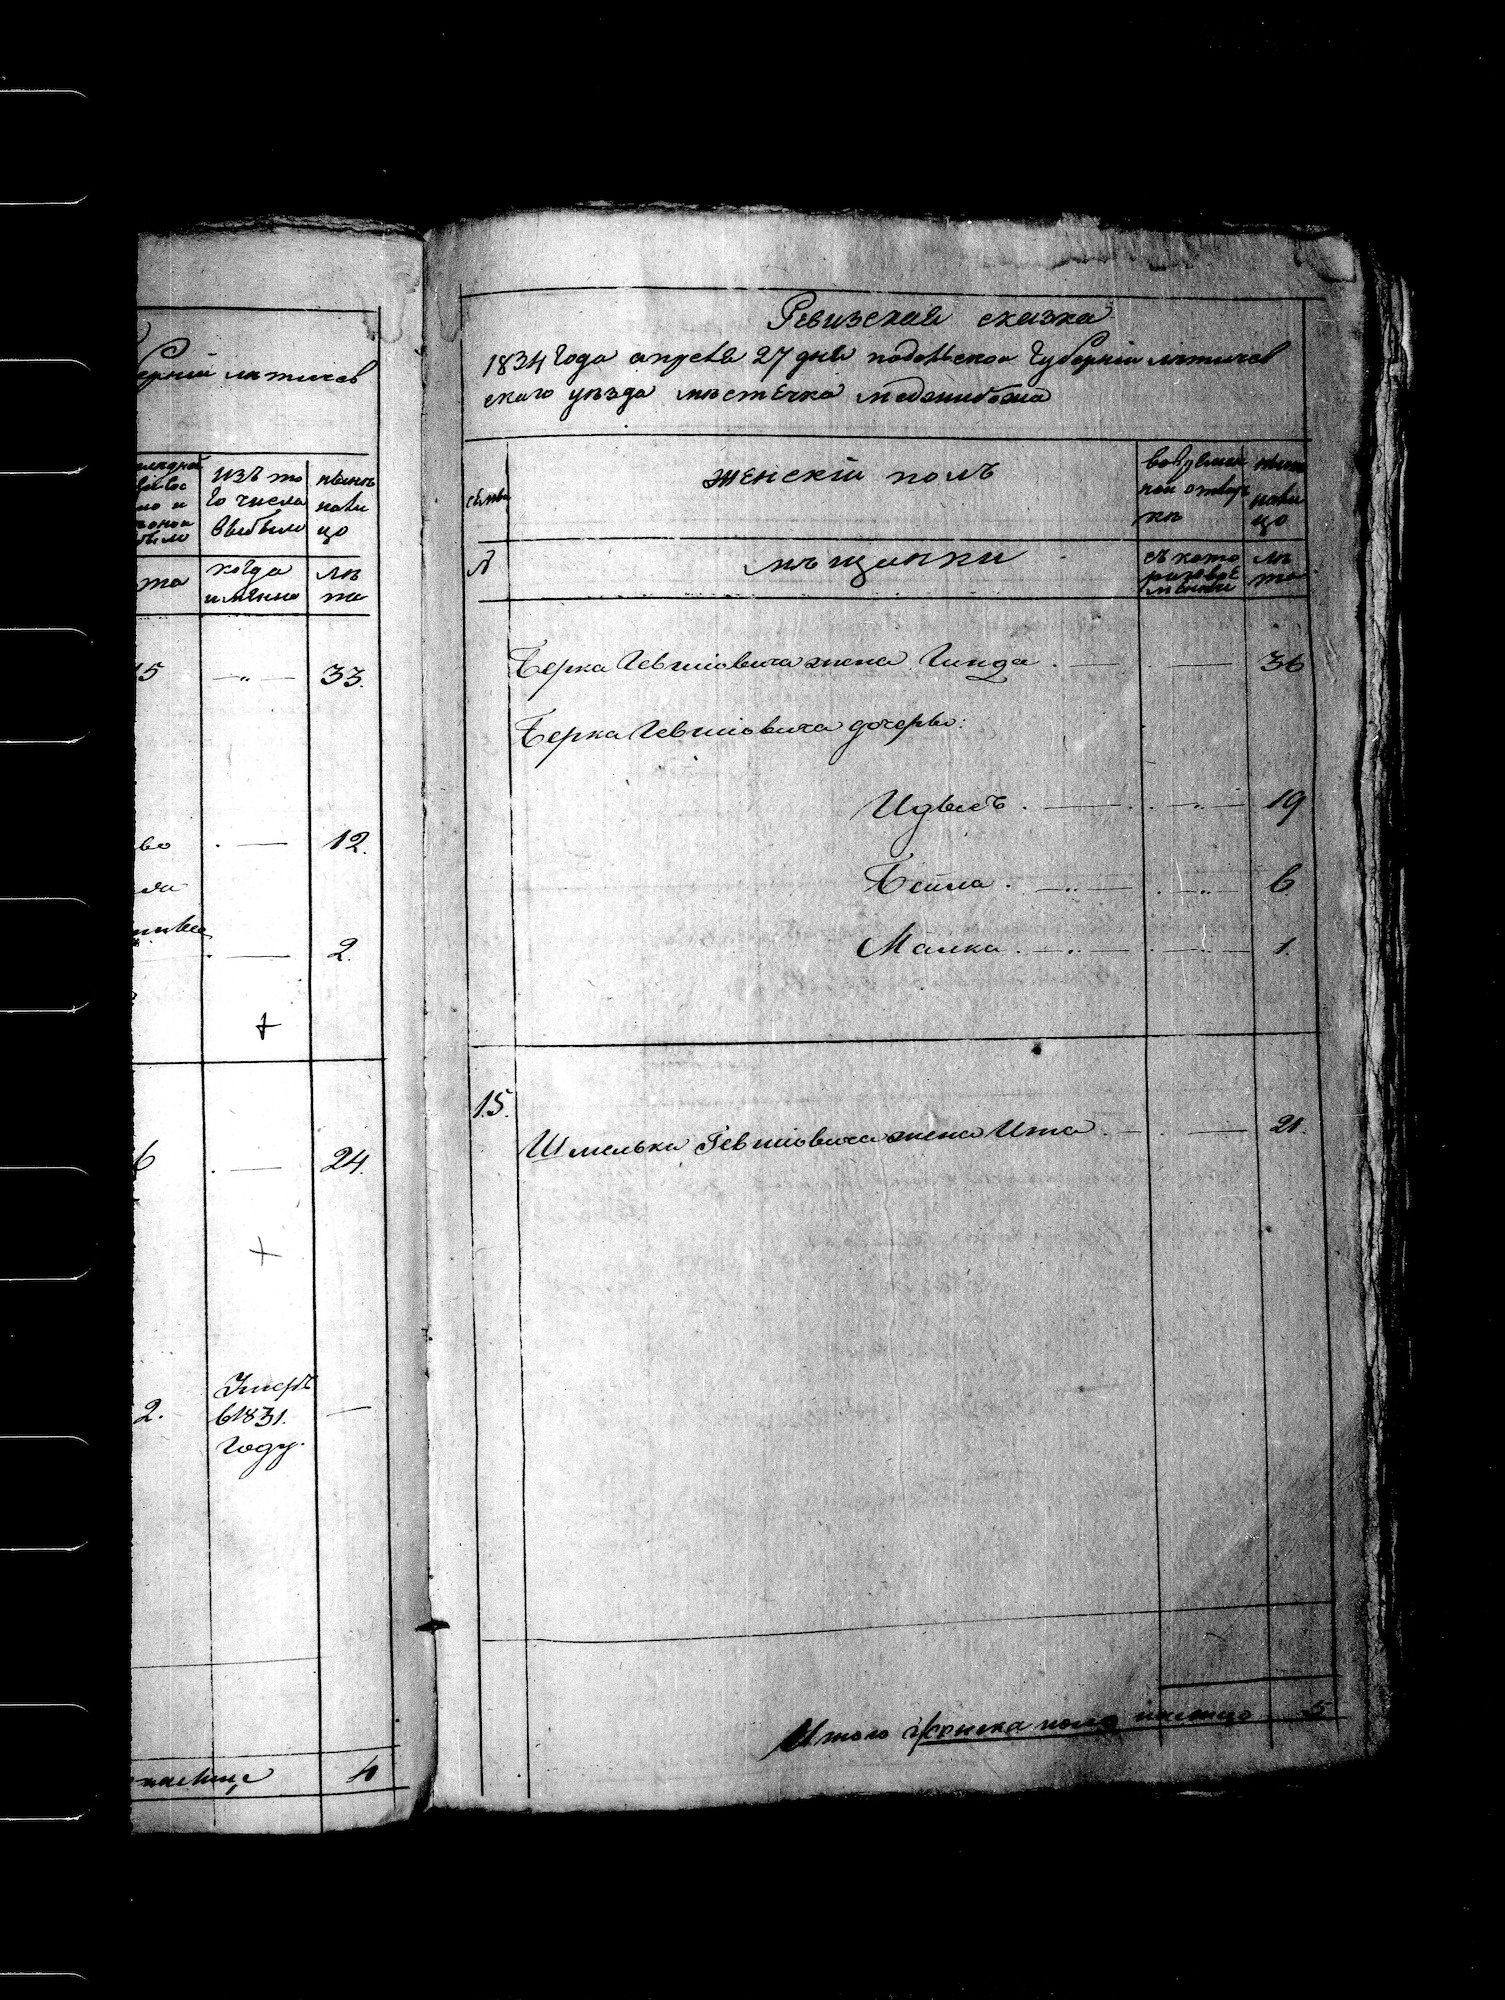 ерніи летичев
изъ то
го числа
выбыло
нынѣ
нали
цо
та
когда
имянно
лѣ
та
15 33.
во 12.
2.
+
6 24.
+
2. Умеръ
в 1831.
году.
налице 4
Ревизская сказка
1834 года апреля 27 дня подольской губерніи летичев
скаго уезда местечка меджибожа
женскій полъ
во времен
ной отлуч
кѣ
нынѣ
нали
цо
№ мещанки
съ кото
раго вре
мени
лѣ
та
Берка Гевшіовича жена Гинда 36
Берка Гевшіовича дочеры:
Идысъ 19
Бейла 6
Малка 1.
15.
Шмелька Гевшіовича жена Ита 21.
Итого женска пола налицо 5